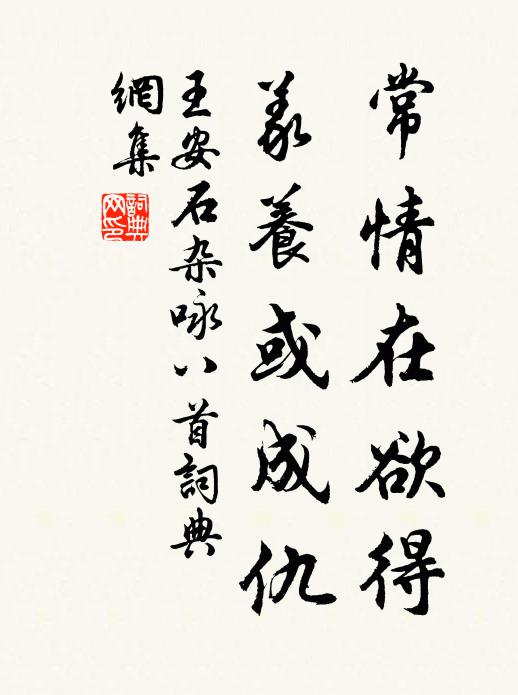 常情在欲得
義養或成仇
王安石杂咏八首詞典
網集
詞典
网印